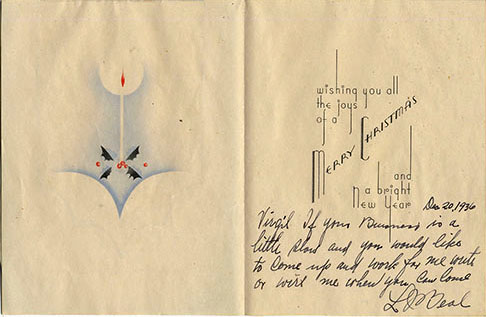 wishing you all
the joys
of a
MERRY CHRISTMAS
and
a bright
New Year
Dec 20, 1936
Virgil If your Business is a
little slow and you would like
to come up and work for me write
or wire me when you can come
L J Neal